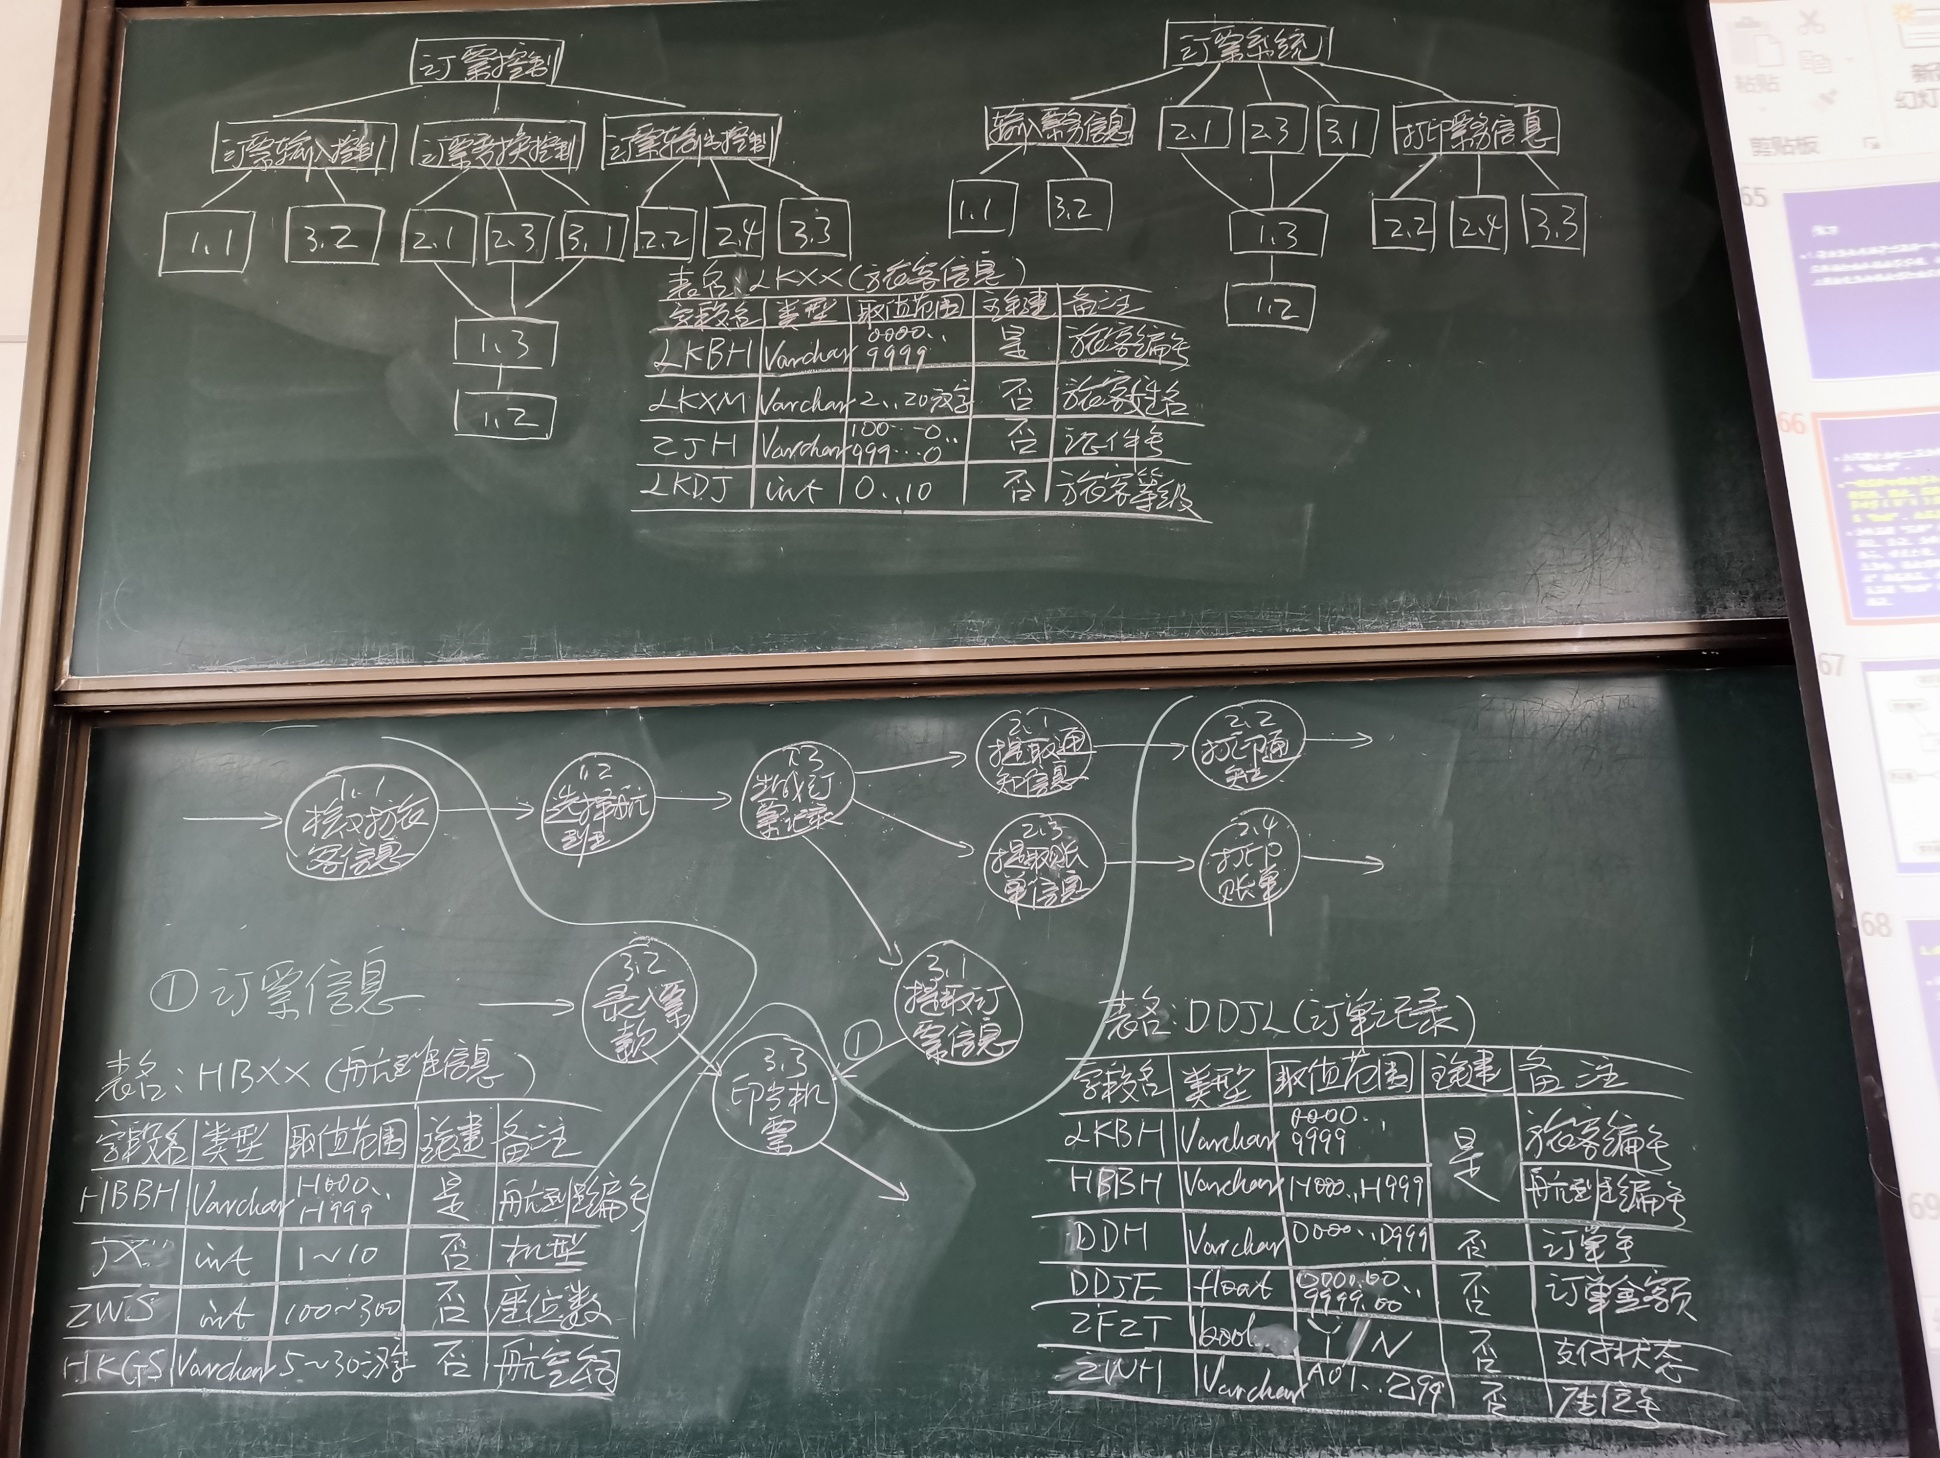 订票控制
订票输入控制 订票变换控制 订票输出控制
1.1 3.2 2.1 2.3 3.1 2.2 2.4 3.3
1.3
1.2
订票系统
输入票务信息 2.1 2.3 3.1 打印票务信息
1.1 3.2 1.3 2.2 2.4 3.3
1.2
表名:LKXX(旅客信息)
字段名 类型 取值范围 主键 备注
LKBH Varchar 0000..9999 是 旅客编号
LKXM Varchar 2..20汉字 否 旅客姓名
ZJH Varchar 100…0..999…0 否 证件号
LKDJ int 0..10 否 旅客等级
1.1
核对旅
客信息
1.2
选择航
班
1.3
生成订
票记录
2.1
提取通
知信息
2.2
打印通
知
2.3
提取账
单信息
2.4
打印
账单
3.2
录入票
款
3.1
提取订
票信息
①
3.3
印字机
票
①订票信息
表名:HBXX(航班信息)
字段名 类型 取值范围 主键 备注
HBBH Varchar H000..H999 是 航班编号
JX int 1~10 否 机型
ZWS int 100~300 否 座位数
HKGS Varchar 5~30汉字 否 航空公司
表名:DDJL(订单记录)
字段名 类型 取值范围 主键 备注
LKBH Varchar 0000..9999 是 旅客编号
HBBH Varchar H000..H999 航班编号
DDH Varchar D000..D999 否 订单号
DDJE float 0000.00..9999.00 否 订单金额
ZFZT bool Y/N 否 支付状态
ZWH Varchar A01..Z99 否 座位号
粘贴
剪贴板
65
66
67
68
69